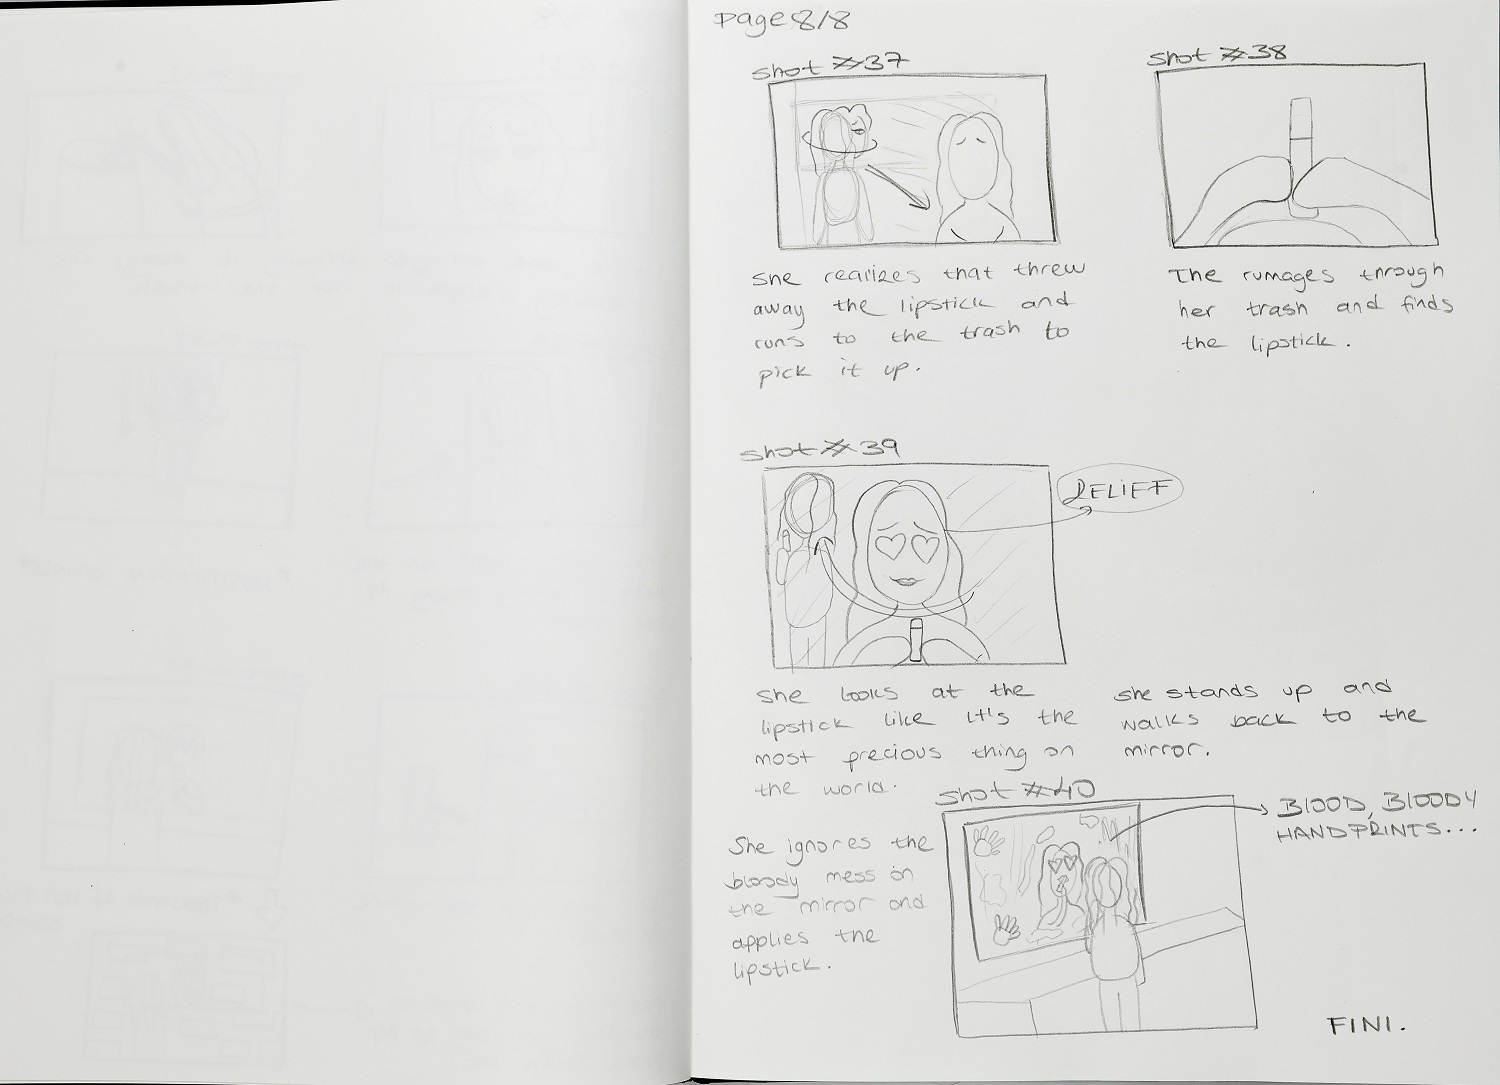 Page 8/8
Shot #37
She realizes that threw
away the lipstick and
runs to the trash to
pick it up.
Shot #38
The rumages through
her trash and finds
the lipstick.
Shot #39
RELIEF
She looks at the
lipstick like it's the
most precious thing on
the world.
She stands up and
walks back to the
mirror.
Shot #40
BlOOD, BlOODY
HANDPRINTS...
She ignores the
bloody mess on
the mirror and
applies the
lipstick.
FINI.